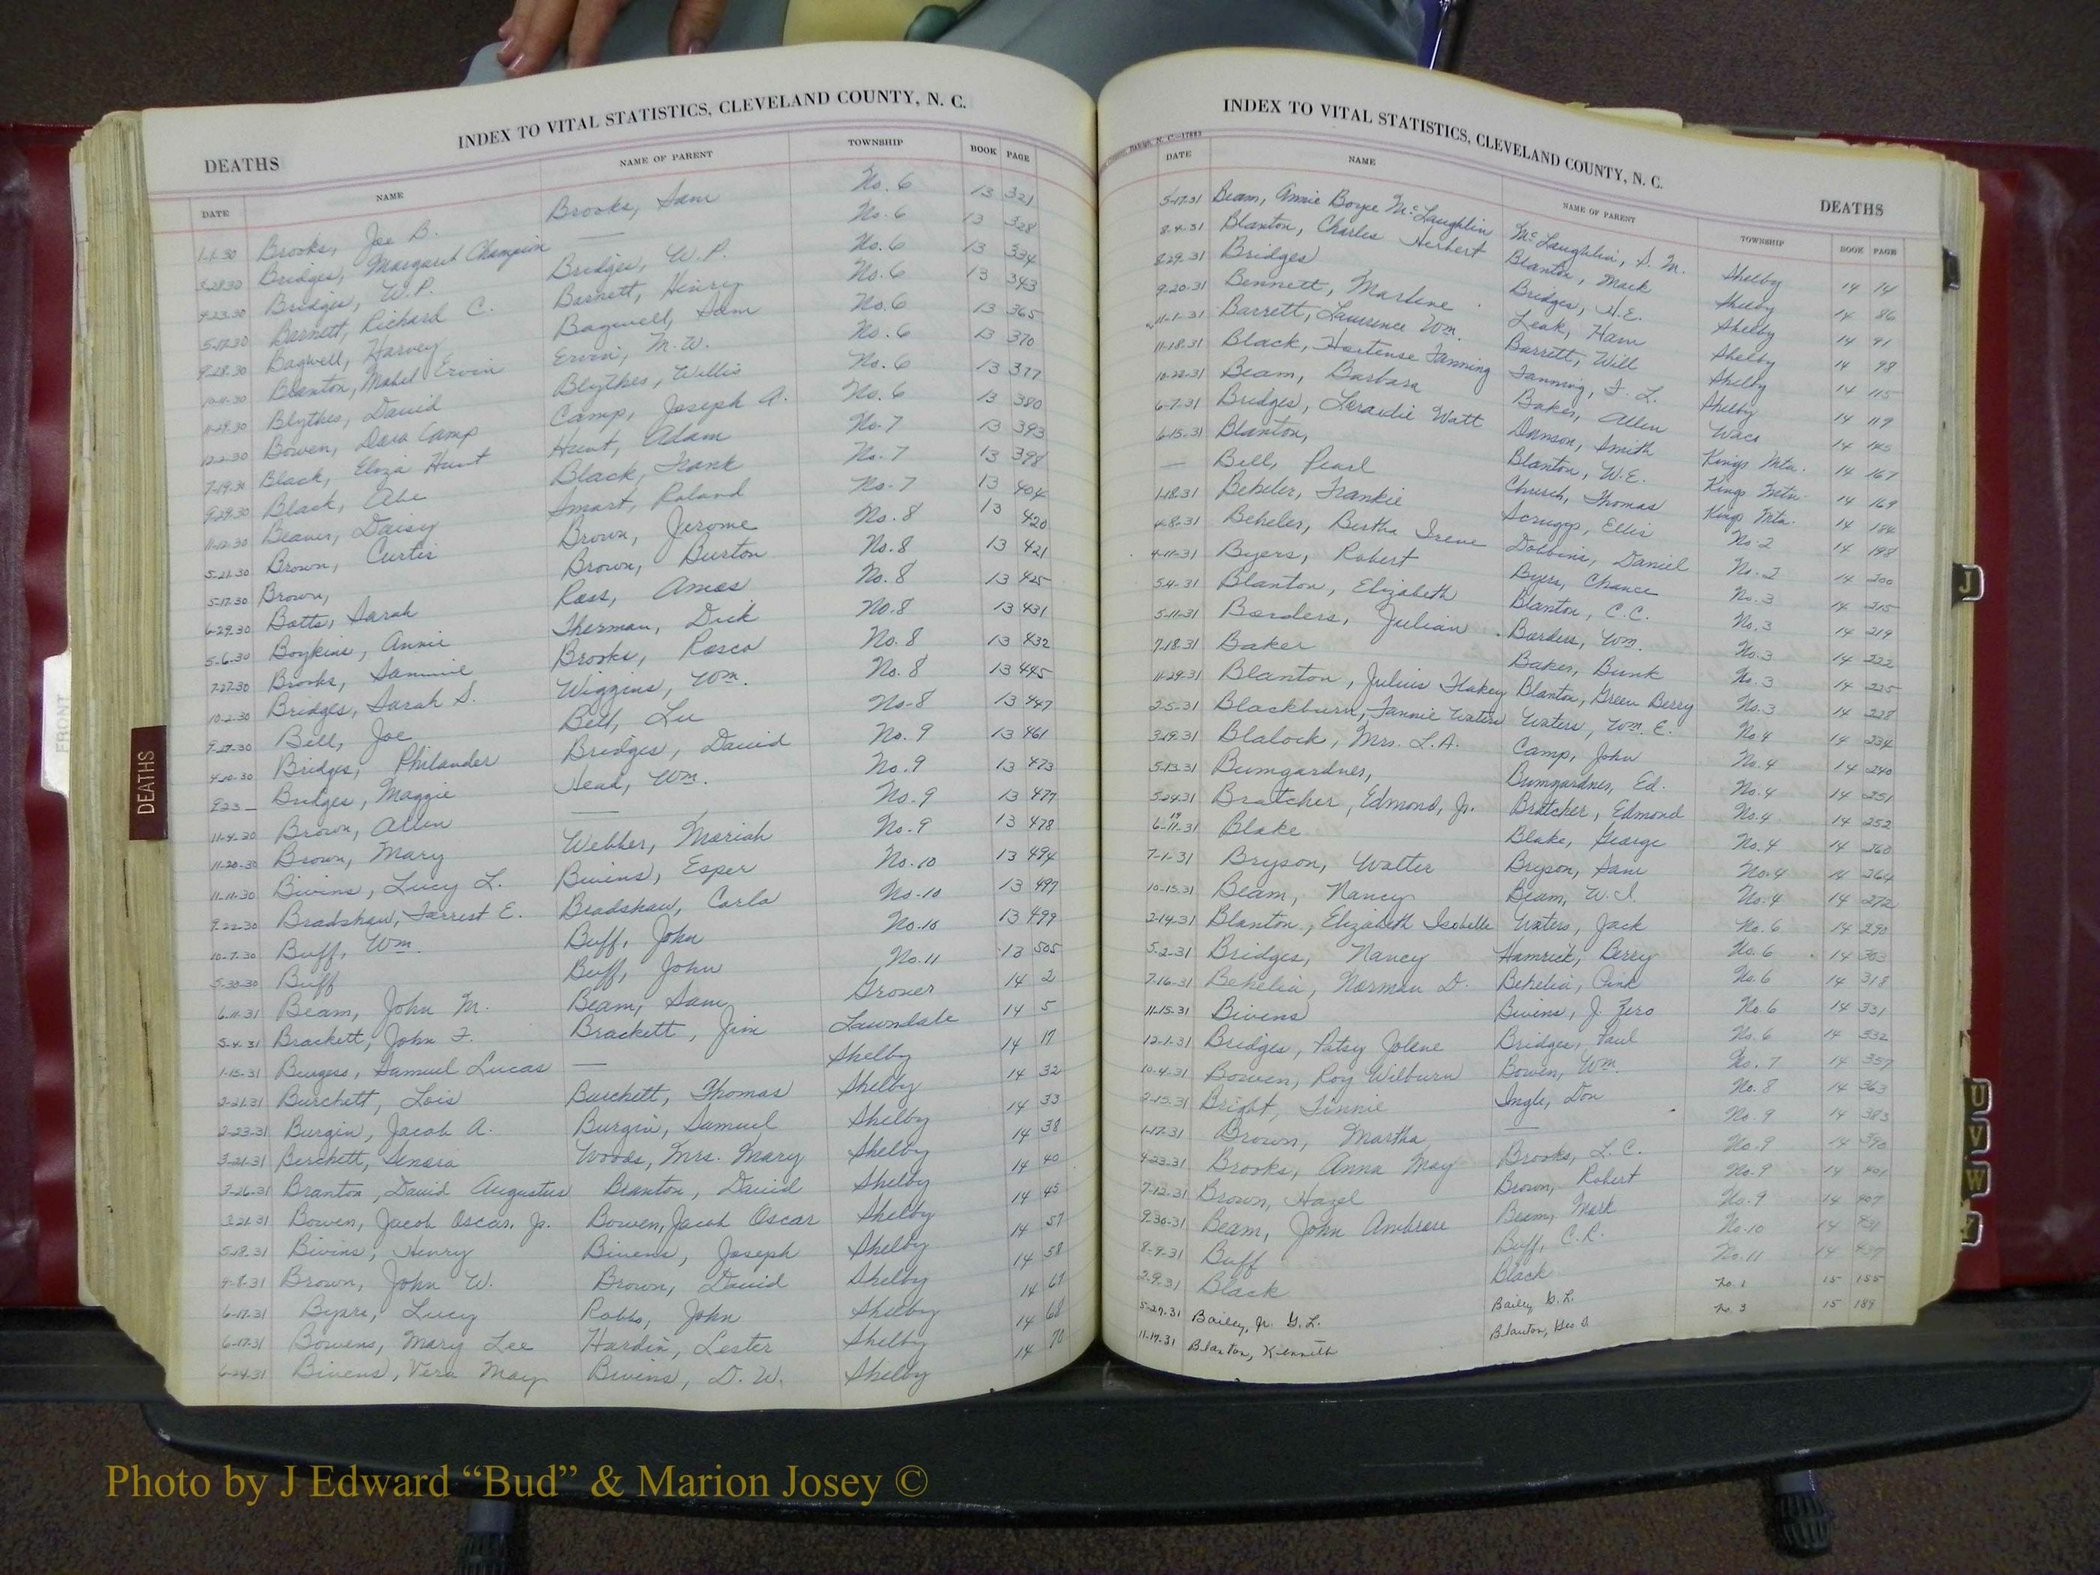 INDEX TO VITAL STATISTICS, CLEVELAND COUNTY, N. C.
DEATHS
DATE NAME NAME OF PARENT TOWNSHIP BOOK PAGE
1-1-30 Brooks, Joe B. Brooks, Sam No. 6 13 321
3-28-30 Bridges, Margaret Champion — No. 6 13 328
4-23-30 Bridges, W.P. Bridges, W. P. No. 6 13 334
5-17-30 Barnett, Richard C. Barnett, Henry No. 6 13 343
9-28-30 Bagwell, Harvey Bagwell, Sam No. 6 13 365
10-11-30 Blanton, Mabel Ervin Ervin, M. W. No. 6 13 370
11-29-30 Blythes, David Blythes, Willis No. 6 13 377
12-2-30 Bowen, Dora Camp Camp, Joseph A. No. 6 13 380
7-19-30 Black, Eliza Hunt Hunt, Adam No. 7 13 393
9-29-30 Black, Abe Black, Frank No. 7 13 398
11-12-30 Beaver, Daisy Smart, Roland No. 7 13 404
5-21-30 Brown, Curtis Brown, Jerome No. 8 13 420
5-17-30 Brown, Brown, Burton No. 8 13 421
6-29-30 Batts, Sarah Ross, Amos No. 8 13 425
5-6-30 Boykins, Annie Therman, Dick No. 8 13 431
7-27-30 Brooks, Sammie Brooks, Rosco No. 8 13 432
10-2-30 Bridges, Sarah S. Wiggins, Wm. No. 8 13 445
9-27-30 Bell, Joe Bell, Lu No. 8 13 447
4-10-30 Bridges, Philander Bridges, David No. 9 13 461
9-23- Bridges, Maggie Head, Wm. No. 9 13 473
11-4-30 Brown, Allen — No. 9 13 477
11-20-30 Brown, Mary Webber, Mariah No. 9 13 478
11-11-30 Bivins, Lucy L. Bivins, Esper No. 10 13 494
9-22-30 Bradshaw, Forrest E. Bradshaw, Carlo No. 10 13 497
10-7-30 Buff, Wm. Buff, John No. 10 13 499
5-30-30 Buff Buff, John No. 11 13 505
6-11-31 Beam, John M. Beam, Sam Grover 14 2
5-4-31 Brackett, John F. Brackett, Jim Lawndale 14 5
1-15-31 Burgess, Samuel Lucas — Shelby 14 17
2-21-31 Burchett, Lois Burchett, Thomas Shelby 14 32
2-23-31 Burgin, Jacob A. Burgin, Samuel Shelby 14 33
3-21-31 Berchett, Senora Woods, Mrs. Mary Shelby 14 38
3-26-31 Branton, David Augustus Branton, David Shelby 14 40
3-21-31 Bowen, Jacob Oscar, Jr. Bowen, Jacob Oscar Shelby 14 45
5-18-31 Bivins, Henry Bivens, Joseph Shelby 14 57
4-8-31 Brown, John W. Brown, David Shelby 14 58
6-17-31 Byers, Lucy Robbs, John Shelby 14 67
6-17-31 Bowens, Mary Lee Hardin, Lester Shelby 14 68
6-24-31 Bivens, Vera May Bivins, D. W. Shelby 14 70
DEATHS
FRONT
INDEX TO VITAL STATISTICS, CLEVELAND COUNTY, N. C.
DEATHS
N. C.—17883
DATE NAME NAME OF PARENT TOWNSHIP BOOK PAGE
5-17-31 Beam, Annie Boyce McLaughlin McLaughlin, S. M. Shelby 14 14
8-4-31 Blanton, Charles Herbert Blanton, Mack Shelby 14 86
8-29-31 Bridges Bridges, H.E. Shelby 14 91
9-20-31 Bennett, Marlene Leak, Ham Shelby 14 98
11-1-31 Barrett, Lawrence Wm. Barrett, Will Shelby 14 115
11-18-31 Black, Hortense Fanning Fanning, F. L. Shelby 14 119
10-22-31 Beam, Barbara Baker, Allen Waco 14 145
6-7-31 Bridges, Watt Dawson, Smith Kings Mtn. 14 167
6-15-31 Blanton, Blanton, W.E. Kings Mtn. 14 169
— Bell, Pearl Church, Thomas Kings Mtn. 14 184
1-18-31 Beheler, Frankie Scruggs, Ellis No. 2 14 198
4-8-31 Beheler, Bertha Irene Dobbins, Daniel No. 2 14 200
4-11-31 Byers, Robert Byers, Chance No. 3 14 215
5-4-31 Blanton, Elizabeth Blanton, C.C. No. 3 14 219
5-11-31 Borders, Julian Borders, Wm. No. 3 14 222
7-18-31 Baker Baker, Bunk No. 3 14 225
11-29-31 Blanton, Julius Flakey Blanton, Green Berry No. 3 14 228
2-5-31 Blackburn, Fannie Waters Waters, Wm. E. No. 4 14 234
3-29-31 Blalock, Mrs. L.A. Camp, John No. 4 14 240
5-13-31 Bumgardner, Bumgardner, Ed. No. 4 14 251
5-24-31 Bratcher, Edmond, Jr. Bratcher, Edmond No. 4 14 252
6-11-31 Blake Blake, George No. 4 14 260
7-1-31 Bryson, Walter Bryson, Sam No. 4 14 264
10-15-31 Beam, Nancy Beam, W. I. No. 4 14 272
2-14-31 Blanton, Elizabeth Isobelle Waters, Jack No. 6 14 290
5-2-31 Bridges, Nancy Hamrick, Berry No. 6 14 303
7-16-31 Behelia, Norman D. Behelia, Pink No. 6 14 318
11-15-31 Bivens Bivins, J. Zero No. 6 14 331
12-1-31 Bridges, Patsy Jolene Bridges, Paul No. 6 14 332
10-4-31 Bowen, Roy Wilburn Bowen, Wm. No. 7 14 357
2-15-31 Bright, Finnie Ingle, Don No. 8 14 363
1-17-31 Brown, Martha — No. 9 14 383
4-23-31 Brooks, Anna May Brooks, L. C. No. 9 14 390
7-12-31 Brown, Hazel Brown, Robert No. 9 14 401
9-30-31 Beam, John Ambrose Beam, Mark No. 9 14 407
8-9-31 Buff Buff, C.R. No. 10 14 431
2-9-31 Black Black No. 11 14 437
5-27-31 Bailey, Jr. G. L. Bailey, G. L. No. 1 15 155
11-17-31 Blanton, Kenneth Blanton, Geo. No. 3 15 189
J
U
V
W
Photo by J Edward “Bud” & Marion Josey ©